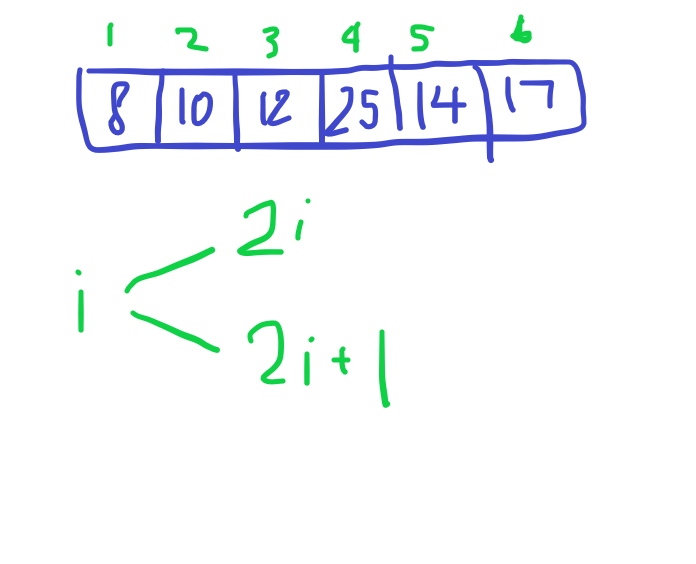 1 2 3 4 5 6
8 10 12 25 14 17
2i
i
2i+1